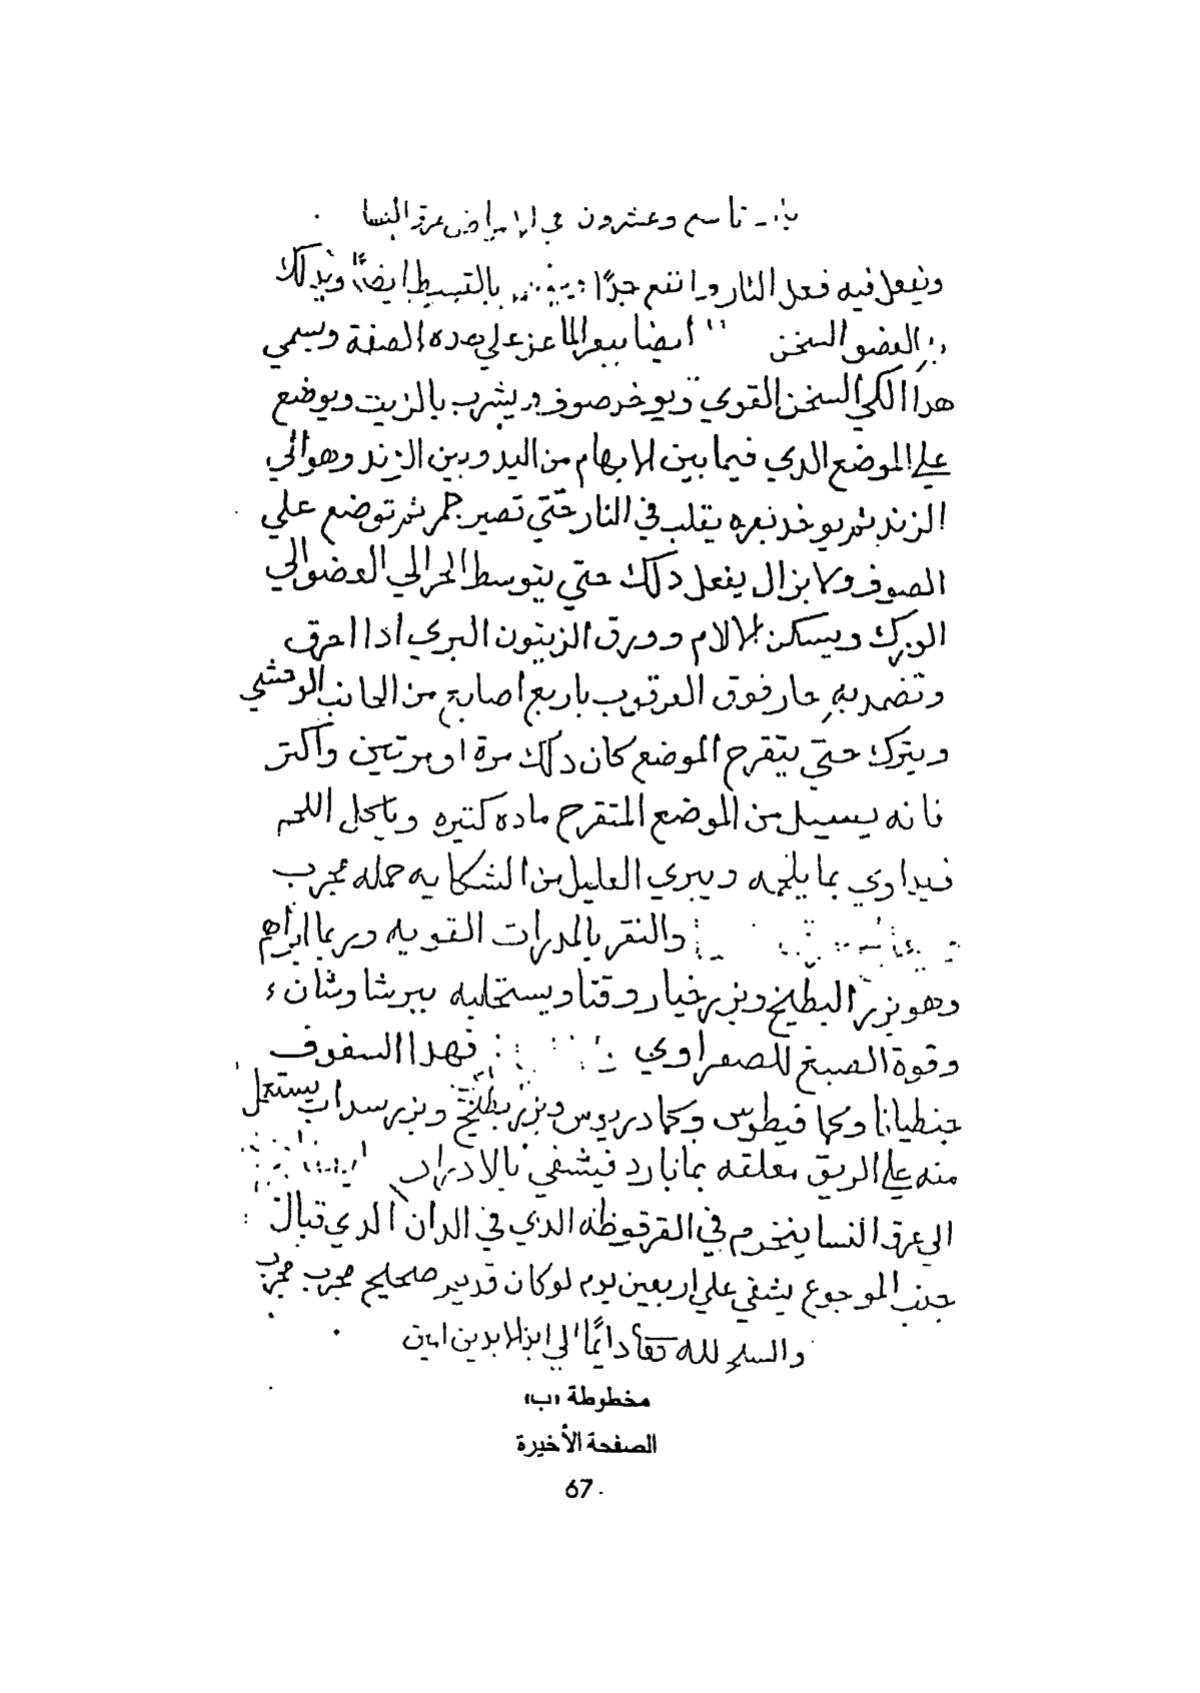 باب تاسع وعشرون في الامراض عرق النسا
ويفعل فيه فعل النار وانتفع جدًا بالتبسيط ايضًا وبدلك
العضو السخن ايضا ببعر الماعز علي هده الصفة ويسمي
هدا الكي السخن القوي ويوخد صوف ويشرب بالزيت ويوضع
علي الموضع الدي فيما بين الابهام من اليد وبين الزند وهو الي
الزند ثم يوخد بعره يقلب في النار حتي تصير جمر ثم توضع علي
الصوف ولا يزال يفعل دلك حتي يتوسط الحر الي العضو الي
الورك ويسكن الالام وورق الزيتون البري ادا احرق
وتضمد به حار فوق العرقوب باربع اصابع من الجانب الوحشي
ويترك حتي يتقرح الموضع كان دلك مرة او مرتين واكتر
فانه يسيل من الموضع المتقرح ماده كتيره وياكل اللحم
فيداوي بما يلحمه ويبري العليل من الشكايه جمله مجرب
والنقر بالمدرات القويه وربما ابراهم
وهو بزر البطيخ وبزر خيار وقتا ويستحلبه ببرشاوشان
وقوة الصبغ للصفراوي فهدا السفوف
جنطيانا وكما فيطوس وكمادريوس وبزر بطيخ وبزر سداب يستعمل
منه علي الريق معلقه بما بارد فيشفي بالادرار
الي عرق النسا ينخرم في القرقوظه الدي في الدان الدي قبال
جنب الموجوع يشفي علي اربعين يوم لو كان قديم صحيح مجرب مجرب
والسبح لله تعا دايمًا الي ابد الابدين امين
مخطوطة «ب»
الصفحة الأخيرة
67